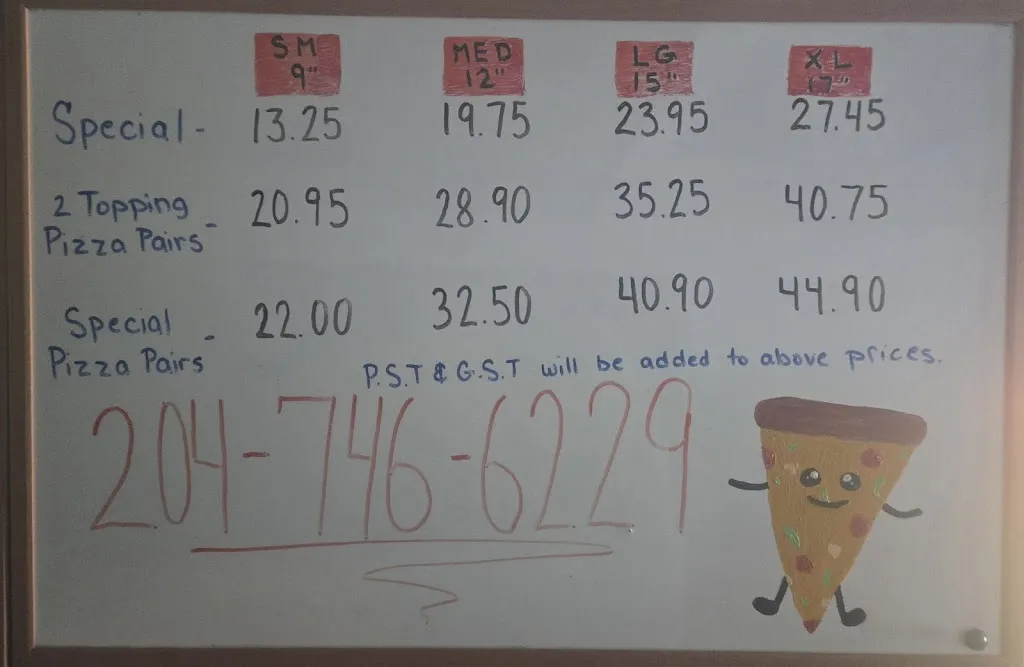 SM MED LG XL
9" 12" 15" 17"
Special - 13.25 19.75 23.95 27.45
2 Topping
Pizza Pairs - 20.95 28.90 35.25 40.75
Special
Pizza Pairs - 22.00 32.50 40.90 44.90
P.S.T & G.S.T will be added to above prices.
204-746-6229